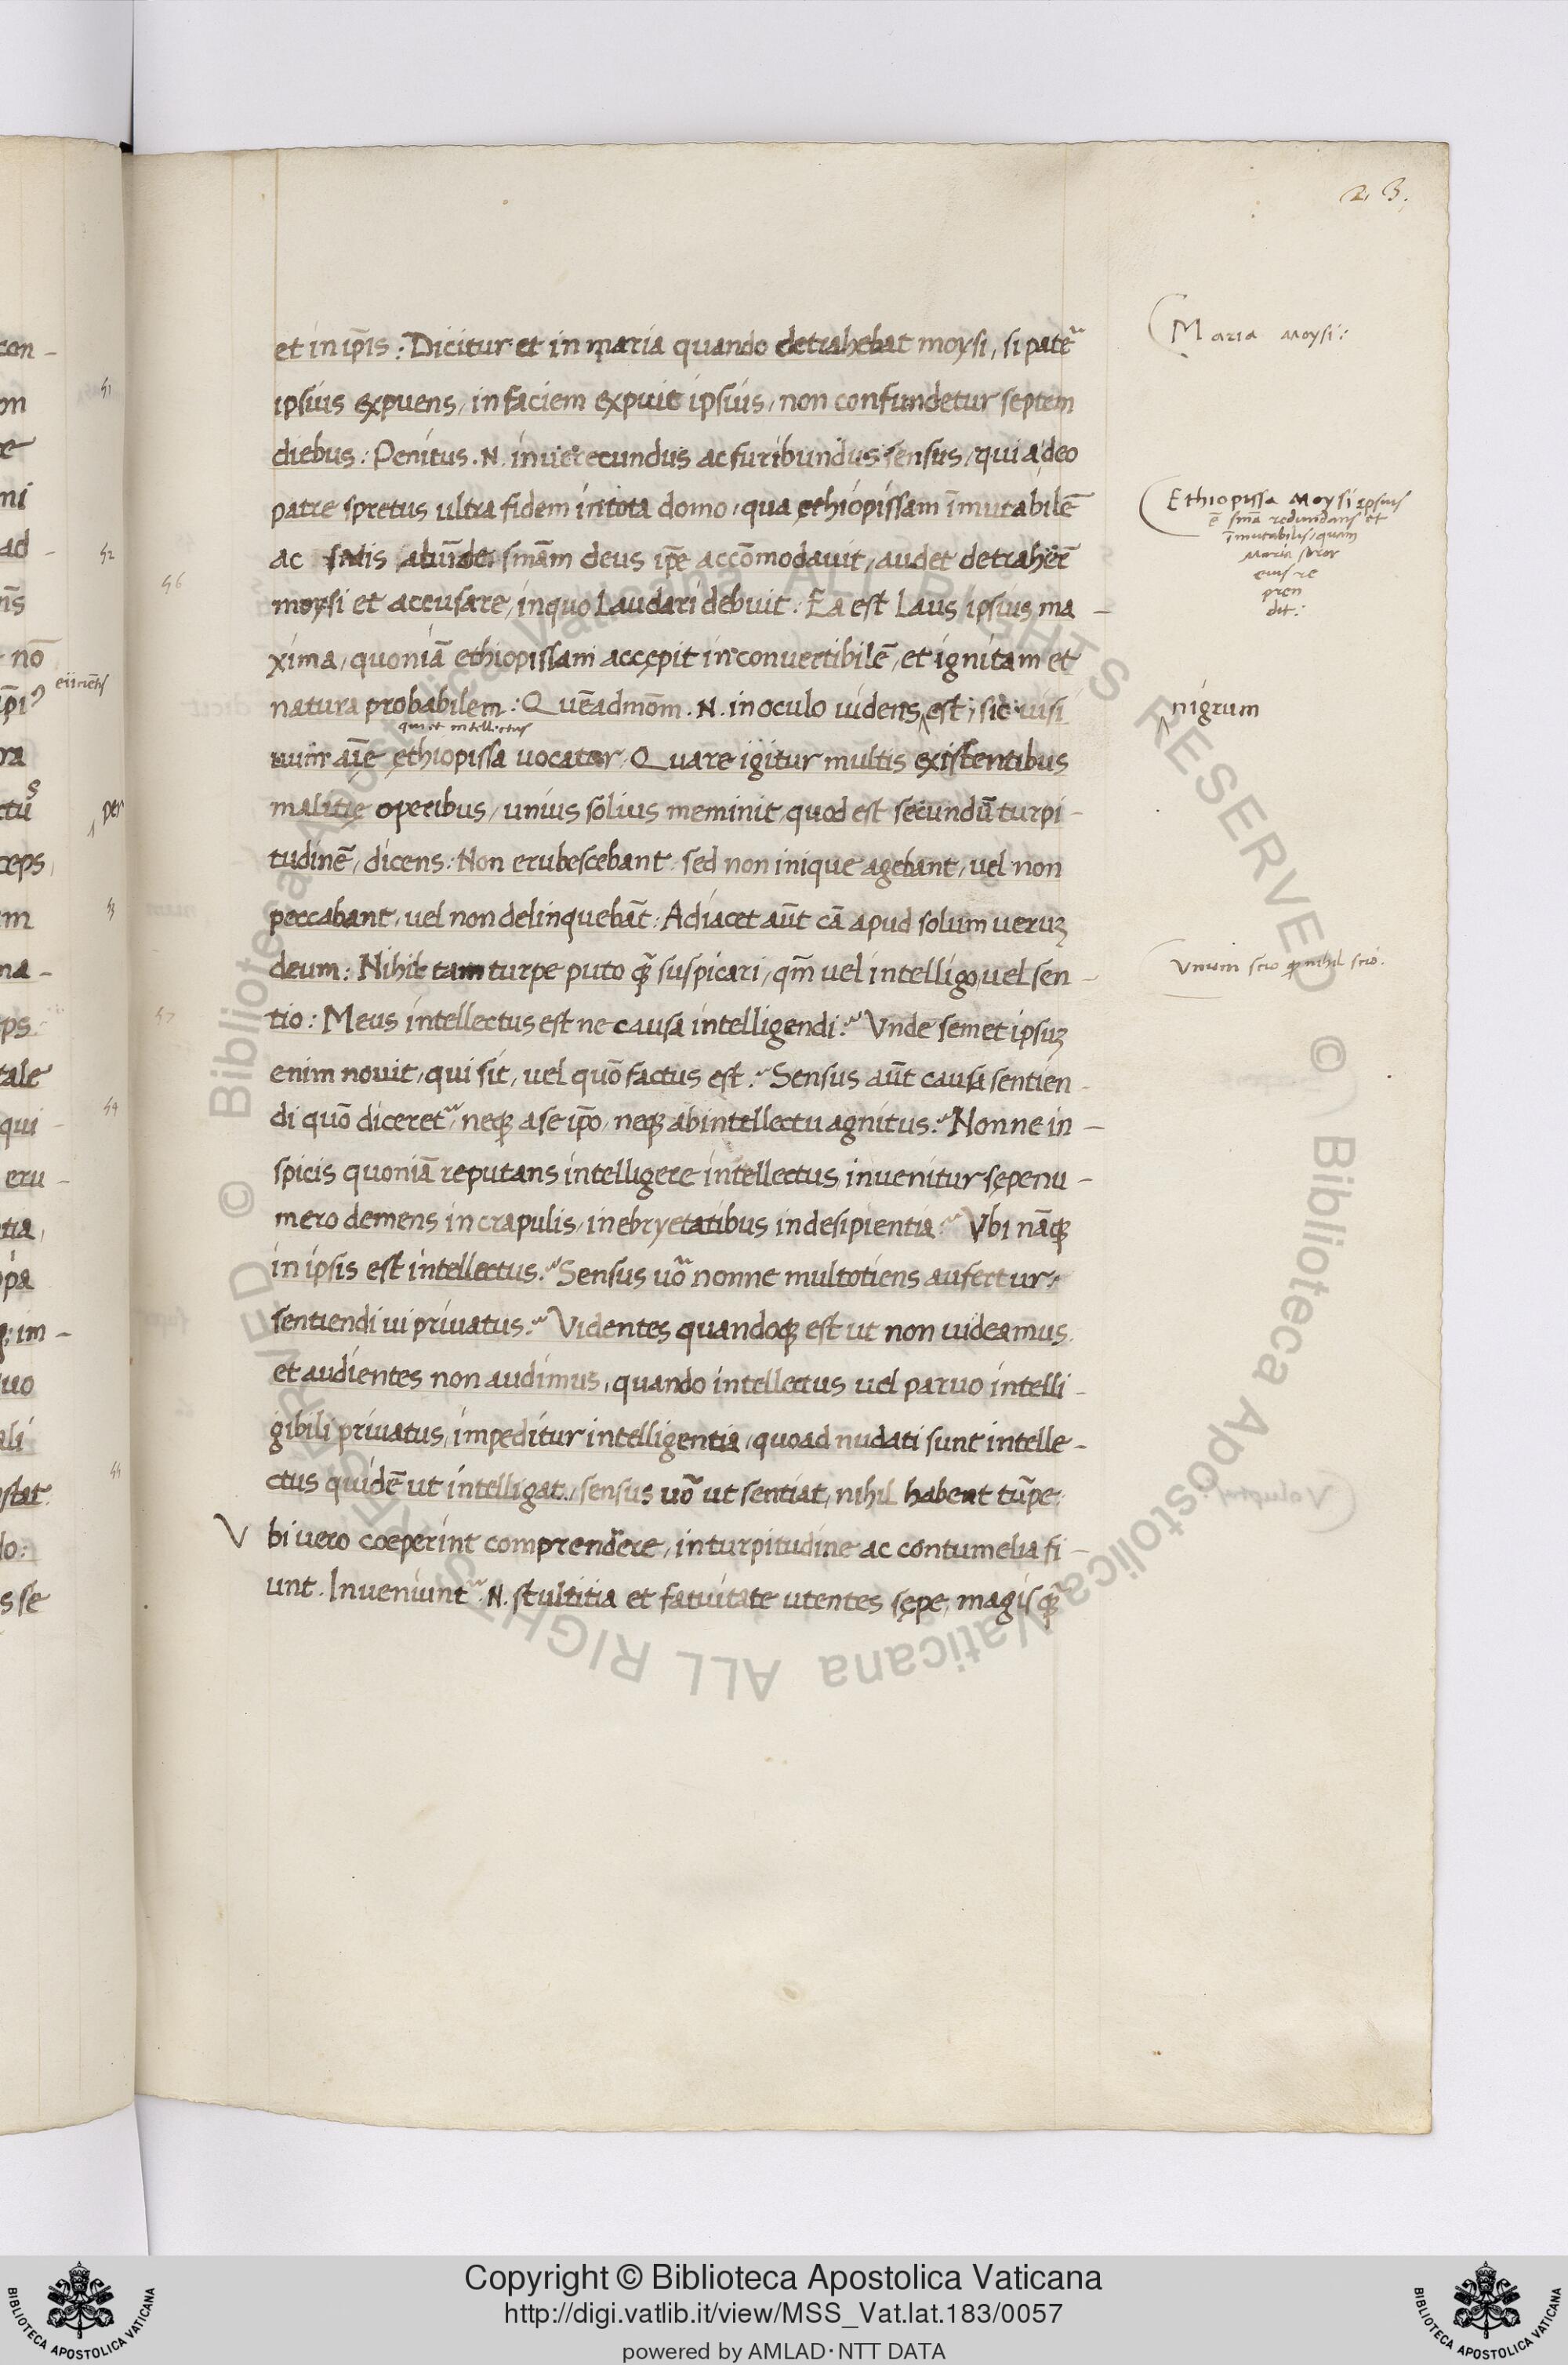 23.
et in ip̄is: Dicitur et in maria quando detrahebat moysi, si patē
ipsius expuens, in faciem expuit ipsius, non confundetur septem
diebus: Penitus .N. inuerecundus ac furibundus sensus, qui a deo
patre spretus ultra fidem in tota domo, qua ethiopissam īmutabilē
ac satis smām deus ip̄e accōmodauit, audet detraherē
moysi et accusare, in quo laudari debuit: Ea est laus ipsius ma-
xima, quoniā ethiopissam accepit inconuertibilē, et ignitam et
natura probabilem: Quēadmōm .N. in oculo uidens est, sic uisi
qui et intellectus
uum aīe ethiopissa uocatur. Quare igitur multis existentibus
malitie operibus, unius solius meminit, quod est secundū turpi-
tudinē, dicens: Non erubescebant sed non inique agebant, uel non
peccabant, uel non delinquebāt: Adiacet aūt cā apud solum ueruz
deum: Nihil tam turpe puto q̄ suspicari, qm̄ uel intelligo, uel sen-
tio: Meus intellectus est ne causa intelligendi? Vnde semet ipsuz
enim nouit, qui sit, uel quō factus est? Sensus aūt causa sentien-
di quō diceret, neq; a se ip̄o, neq; ab intellectu agnitus? Nonne in-
spicis quoniā reputans intelligere intellectus, inuenitur sepenu-
mero demens in crapulis, in ebryetatibus in desipientia? Vbi nāq;
in ipsis est intellectus? Sensus uō nonne multotiens aufertur
sentiendi ui priuatus? Videntes quandoq; est ut non uideamus
et audientes non audimus, quando intellectus uel paruo intelli-
gibili priuatus, impeditur intelligentia, quoad nudati sunt intelle-
ctus quidē ut intelligat, sensus uō ut sentiat, nihil habent tūpe:
V bi uero coeperint comprendere, in turpitudine ac contumelia fi-
unt. Inueniunt .N. stultitia et fatuitate utentes sepe, magis q̄
Maria Moysi:
Ethiopissa Moysi ipsius
ē smā redundans et
īmutabilis, quam
Maria soror
eius re
pren
dit:
nigrum
Vnum scio q nihil scio.
56
57
con-
on
re
mi
ad-
nō
ra
ceps,
im
na-
ps
tale
qui-
eru-
tia,
im-
uo
ali
stat
do:
s se
51
52
53
54
55
© Biblioteca Apostolica Vaticana ALL RIGHTS RESERVED © Biblioteca Apostolica Vaticana ALL RIGHTS RESERVED
Copyright © Biblioteca Apostolica Vaticana
http://digi.vatlib.it/view/MSS_Vat.lat.183/0057
powered by AMLAD·NTT DATA
BIBLIOTECA APOSTOLICA VATICANA
BIBLIOTECA APOSTOLICA VATICANA